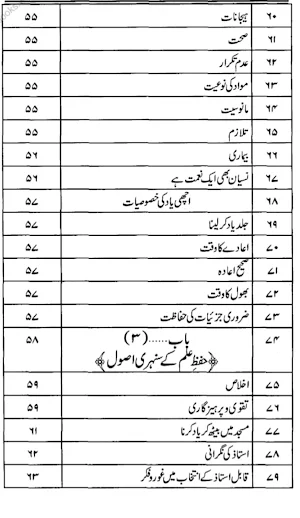 ۶۰ ہیجانات ۵۵
۶۱ صحت ۵۵
۶۲ عدم تکرار ۵۵
۶۳ مواد کی نوعیت ۵۵
۶۴ مانوسیت ۵۵
۶۵ تلازم ۵۵
۶۶ بیماری ۵۶
۶۷ نسیان بھی ایک نعمت ہے ۵۶
۶۸ اچھی یاد کی خصوصیات ۵۷
۶۹ جلد یاد کر لینا ۵۷
۷۰ اعادے کا وقت ۵۷
۷۱ صحیح اعادہ ۵۷
۷۲ بھول کا وقت ۵۷
۷۳ ضروری جزئیات کی حفاظت ۵۷
۷۴ باب......(۳) ۵۸
﴿حفظ علم کے سنہری اصول﴾
۷۵ اخلاص ۵۹
۷۶ تقویٰ و پرہیزگاری ۵۹
۷۷ مسجد میں بیٹھ کر یاد کرنا ۶۱
۷۸ استاذ کی نگرانی ۶۲
۷۹ قابل استاذ کے انتخاب میں غور و فکر ۶۳